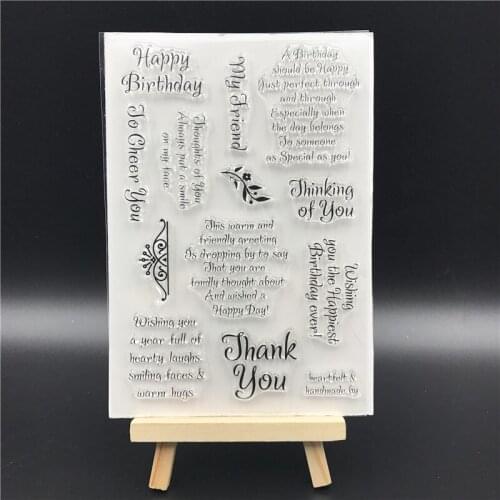 Happy
Birthday
My Friend
A Birthday
should be Happy
Just perfect through
and through
Especially when
the day belongs
To someone
as Special as you!
To Cheer You
Thoughts of You
Always put a smile
on my face
Thinking
of You
This warm and
friendly greeting
Is dropping by to say
That you are
fondly thought about
And wished a
Happy Day!
Wishing
you the Happiest
Birthday ever!
Wishing you
a year full of
hearty laughs
smiling faces &
warm hugs
Thank
You
heartfelt &
handmade by